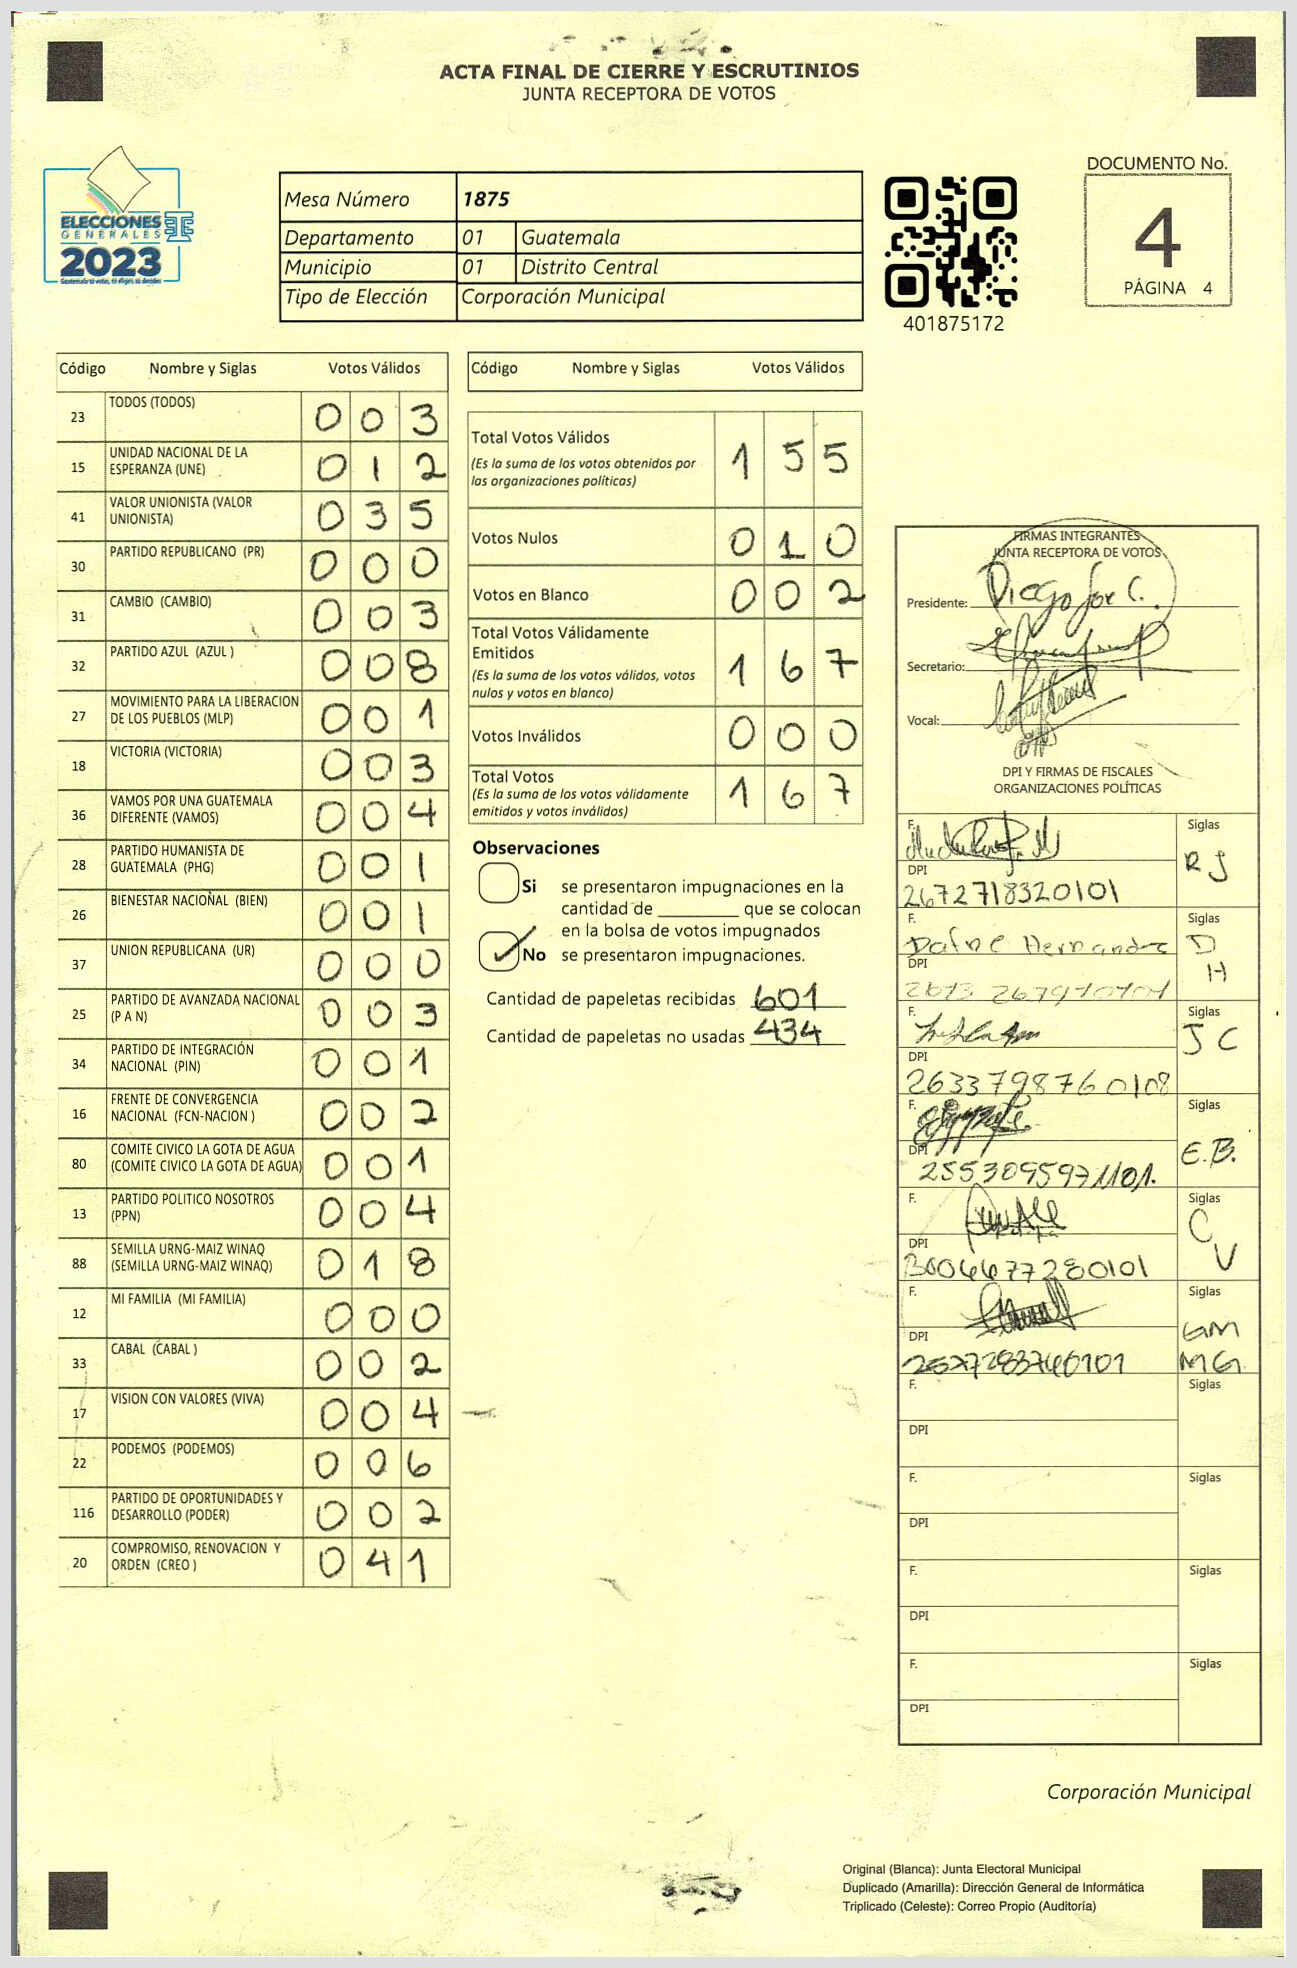 ACTA FINAL DE CIERRE Y ESCRUTINIOS
JUNTA RECEPTORA DE VOTOS
ELECCIONES
GENERALES
2023
Mesa Número 1875
Departamento 01 Guatemala
Municipio 01 Distrito Central
Tipo de Elección Corporación Municipal
401875172
DOCUMENTO No.
4
PÁGINA 4
Código Nombre y Siglas Votos Válidos
23 TODOS (TODOS) 0 0 3
15 UNIDAD NACIONAL DE LA
ESPERANZA (UNE) 0 1 2
41 VALOR UNIONISTA (VALOR
UNIONISTA) 0 3 5
30 PARTIDO REPUBLICANO (PR) 0 0 0
31 CAMBIO (CAMBIO) 0 0 3
32 PARTIDO AZUL (AZUL ) 0 0 8
27 MOVIMIENTO PARA LA LIBERACION
DE LOS PUEBLOS (MLP) 0 0 1
18 VICTORIA (VICTORIA) 0 0 3
36 VAMOS POR UNA GUATEMALA
DIFERENTE (VAMOS) 0 0 4
28 PARTIDO HUMANISTA DE
GUATEMALA (PHG) 0 0 1
26 BIENESTAR NACIONAL (BIEN) 0 0 1
37 UNION REPUBLICANA (UR) 0 0 0
25 PARTIDO DE AVANZADA NACIONAL
(P A N) 0 0 3
34 PARTIDO DE INTEGRACIÓN
NACIONAL (PIN) 0 0 1
16 FRENTE DE CONVERGENCIA
NACIONAL (FCN-NACION ) 0 0 2
80 COMITE CIVICO LA GOTA DE AGUA
(COMITE CIVICO LA GOTA DE AGUA) 0 0 1
13 PARTIDO POLITICO NOSOTROS
(PPN) 0 0 4
88 SEMILLA URNG-MAIZ WINAQ
(SEMILLA URNG-MAIZ WINAQ) 0 1 8
12 MI FAMILIA (MI FAMILIA) 0 0 0
33 CABAL (CABAL ) 0 0 2
17 VISION CON VALORES (VIVA) 0 0 4
22 PODEMOS (PODEMOS) 0 0 6
116 PARTIDO DE OPORTUNIDADES Y
DESARROLLO (PODER) 0 0 2
20 COMPROMISO, RENOVACION Y
ORDEN (CREO ) 0 4 1
Código Nombre y Siglas Votos Válidos
Total Votos Válidos 1 5 5
(Es la suma de los votos obtenidos por
las organizaciones políticas)
Votos Nulos 0 1 0
Votos en Blanco 0 0 2
Total Votos Válidamente
Emitidos 1 6 7
(Es la suma de los votos válidos, votos
nulos y votos en blanco)
Votos Inválidos 0 0 0
Total Votos 1 6 7
(Es la suma de los votos válidamente
emitidos y votos inválidos)
Observaciones
Si se presentaron impugnaciones en la
cantidad de ________ que se colocan
en la bolsa de votos impugnados
No se presentaron impugnaciones.
Cantidad de papeletas recibidas 601
Cantidad de papeletas no usadas 434
FIRMAS INTEGRANTES
JUNTA RECEPTORA DE VOTOS
Presidente: Diego
Secretario:
Vocal:
DPI Y FIRMAS DE FISCALES
ORGANIZACIONES POLÍTICAS
F. Siglas
R J
DPI
2672718320101
F. Siglas
Hernandez D H
DPI
F. Siglas
J C
DPI
2633798760108
F. Siglas
E.B.
DPI
F. Siglas
C V
DPI
F. Siglas
GM
DPI
MG
F. Siglas
DPI
F. Siglas
DPI
F. Siglas
DPI
F. Siglas
DPI
Corporación Municipal
Original (Blanca): Junta Electoral Municipal
Duplicado (Amarilla): Dirección General de Informática
Triplicado (Celeste): Correo Propio (Auditoría)